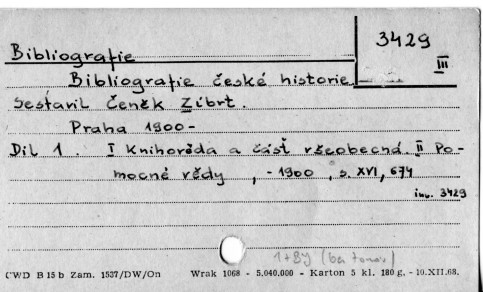 3429
III
Bibliografie
Bibliografie české historie
Sestavil Čeněk Zíbrt.
Praha 1900-
Díl 1. I Knihověda a část všeobecná. II Po-
mocné vědy, - 1900, s. XVI, 674
inv. 3429
1+BJ
CWD B 15 b Zam. 1537/DW/On Wrak 1068 - 5.040.000 - Karton 5 kl. 180 g. - 10.XII.68.